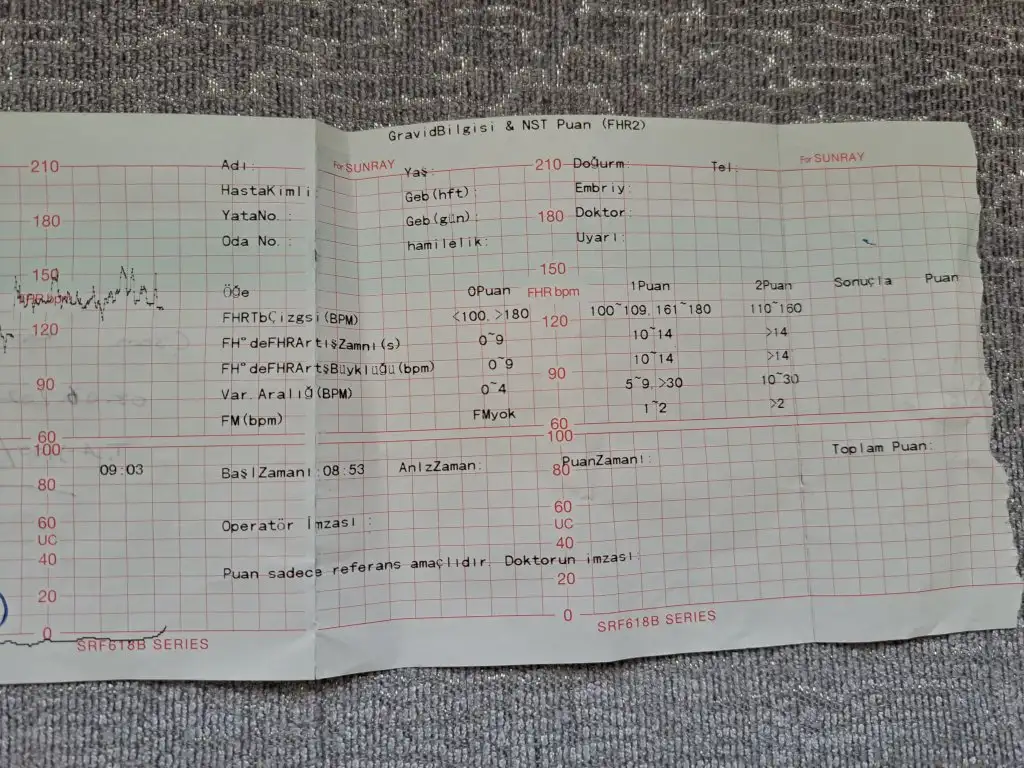 GravidBilgisi & NST Puan (FHR2)
210 Adı: For SUNRAY Yaş: 210 Doğurm: Tel: For SUNRAY
HastaKimli: Geb(hft): Embriy:
180 YataNo. : Geb(gün): 180 Doktor:
Oda No. : hamilelik: Uyarı:
150 150
FHR bpm Öğe 0Puan FHR bpm 1Puan 2Puan Sonuçla Puan
120 FHRTbÇizgsi(BPM) <100. >180 120 100~109. 161~180 110~160
FH"deFHRArtışZamnı(s) 0~9 10~14 >14
FH"deFHRArtşBüyklüğü(bpm) 0~9 10~14 >14
90 Var. Aralığ(BPM) 0~4 90 5~9. >30 10~30
FM(bpm) FMyok 1~2 >2
60 60
100 100
09:03 BaşlZamanı:08:53 AnlzZaman: PuanZamanı: Toplam Puan:
80 80
60 Operatör İmzası : 60
UC UC
40 40
Puan sadece referans amaçlıdır. Doktorun imzası:
20 20
0 0
SRF618B SERIES SRF618B SERIES